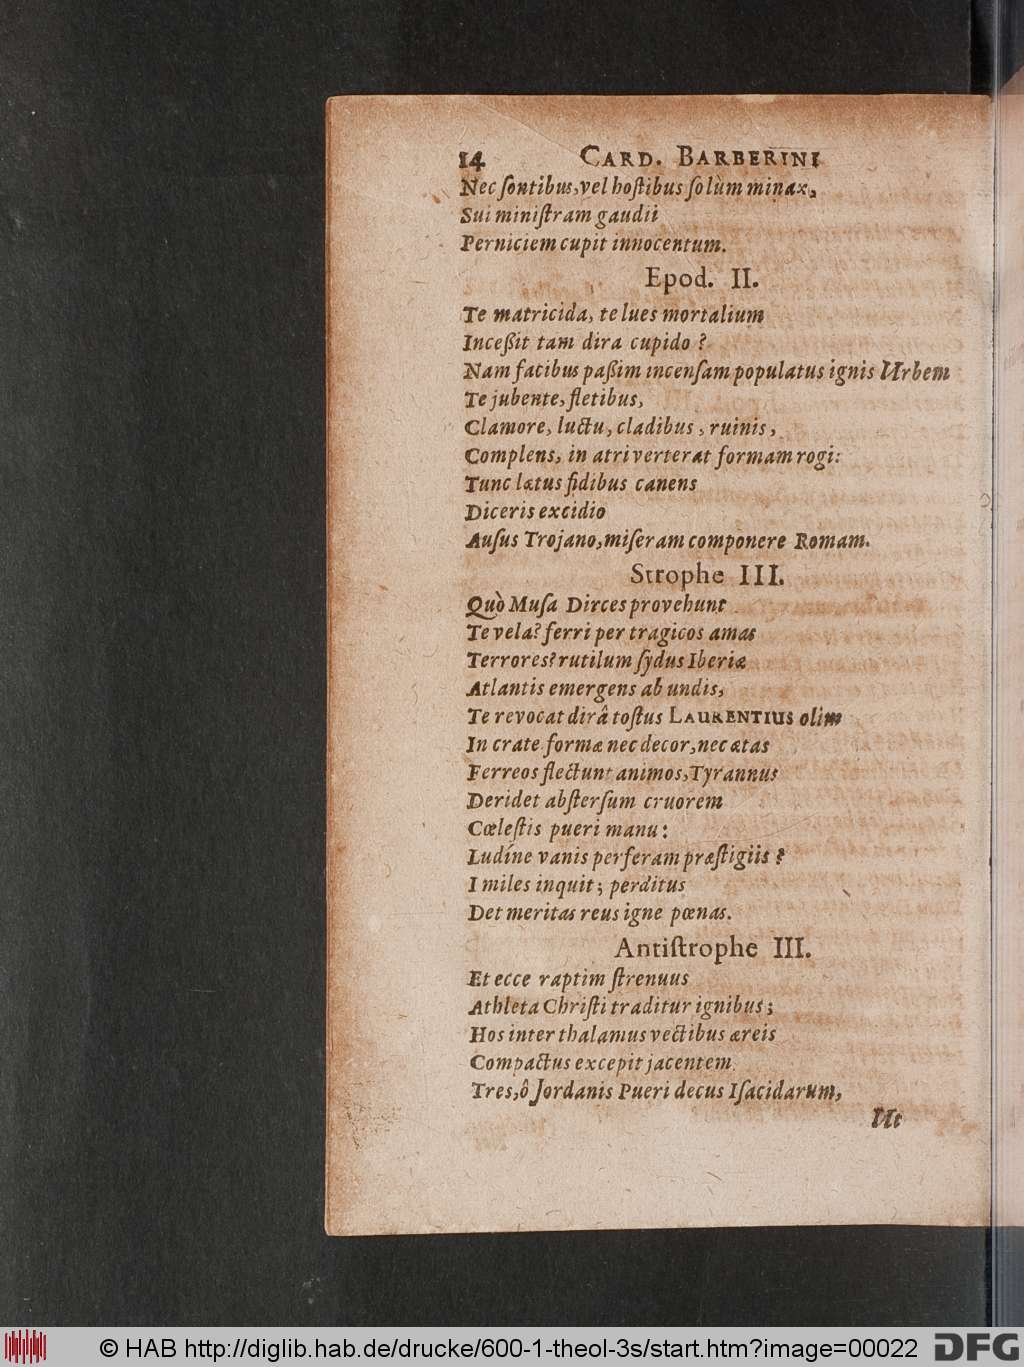 14 CARD. BARBERINI
Nec ſontibus, vel hoſtibus ſolùm minax,
Sui miniſtram gaudii
Perniciem cupit innocentum.
Epod. II.
Te matricida, te lues mortalium
Inceßit tam dira cupido?
Nam facibus paßim incenſam populatus ignis Urbem
Te jubente, fletibus,
Clamore, luctu, cladibus, ruinis,
Complens, in atri verterat formam rogi:
Tunc lætus fidibus canens
Diceris excidio
Auſus Trojano, miſeram componere Romam.
Strophe III.
Quò Muſa Dirces provehunt
Te vela? ferri per tragicos amas
Terrores? rutilum ſydus Iberiæ
Atlantis emergens ab undis,
Te revocat dirâ toſtus LAURENTIUS olim
In crate formæ nec decor, nec ætas
Ferreos flectunt animos, Tyrannus
Deridet abſterſum cruorem
Cœleſtis pueri manu:
Ludíne vanis perferam præſtigiis?
I miles inquit; perditus
Det meritas reus igne pœnas.
Antiſtrophe III.
Et ecce raptim ſtrenuus
Athleta Chriſti traditur ignibus;
Hos inter thalamus vectibus æreis
Compactus excepit jacentem
Tres, ô Jordanis Pueri decus Iſacidarum,
Ut
© HAB http://diglib.hab.de/drucke/600-1-theol-3s/start.htm?image=00022
DFG